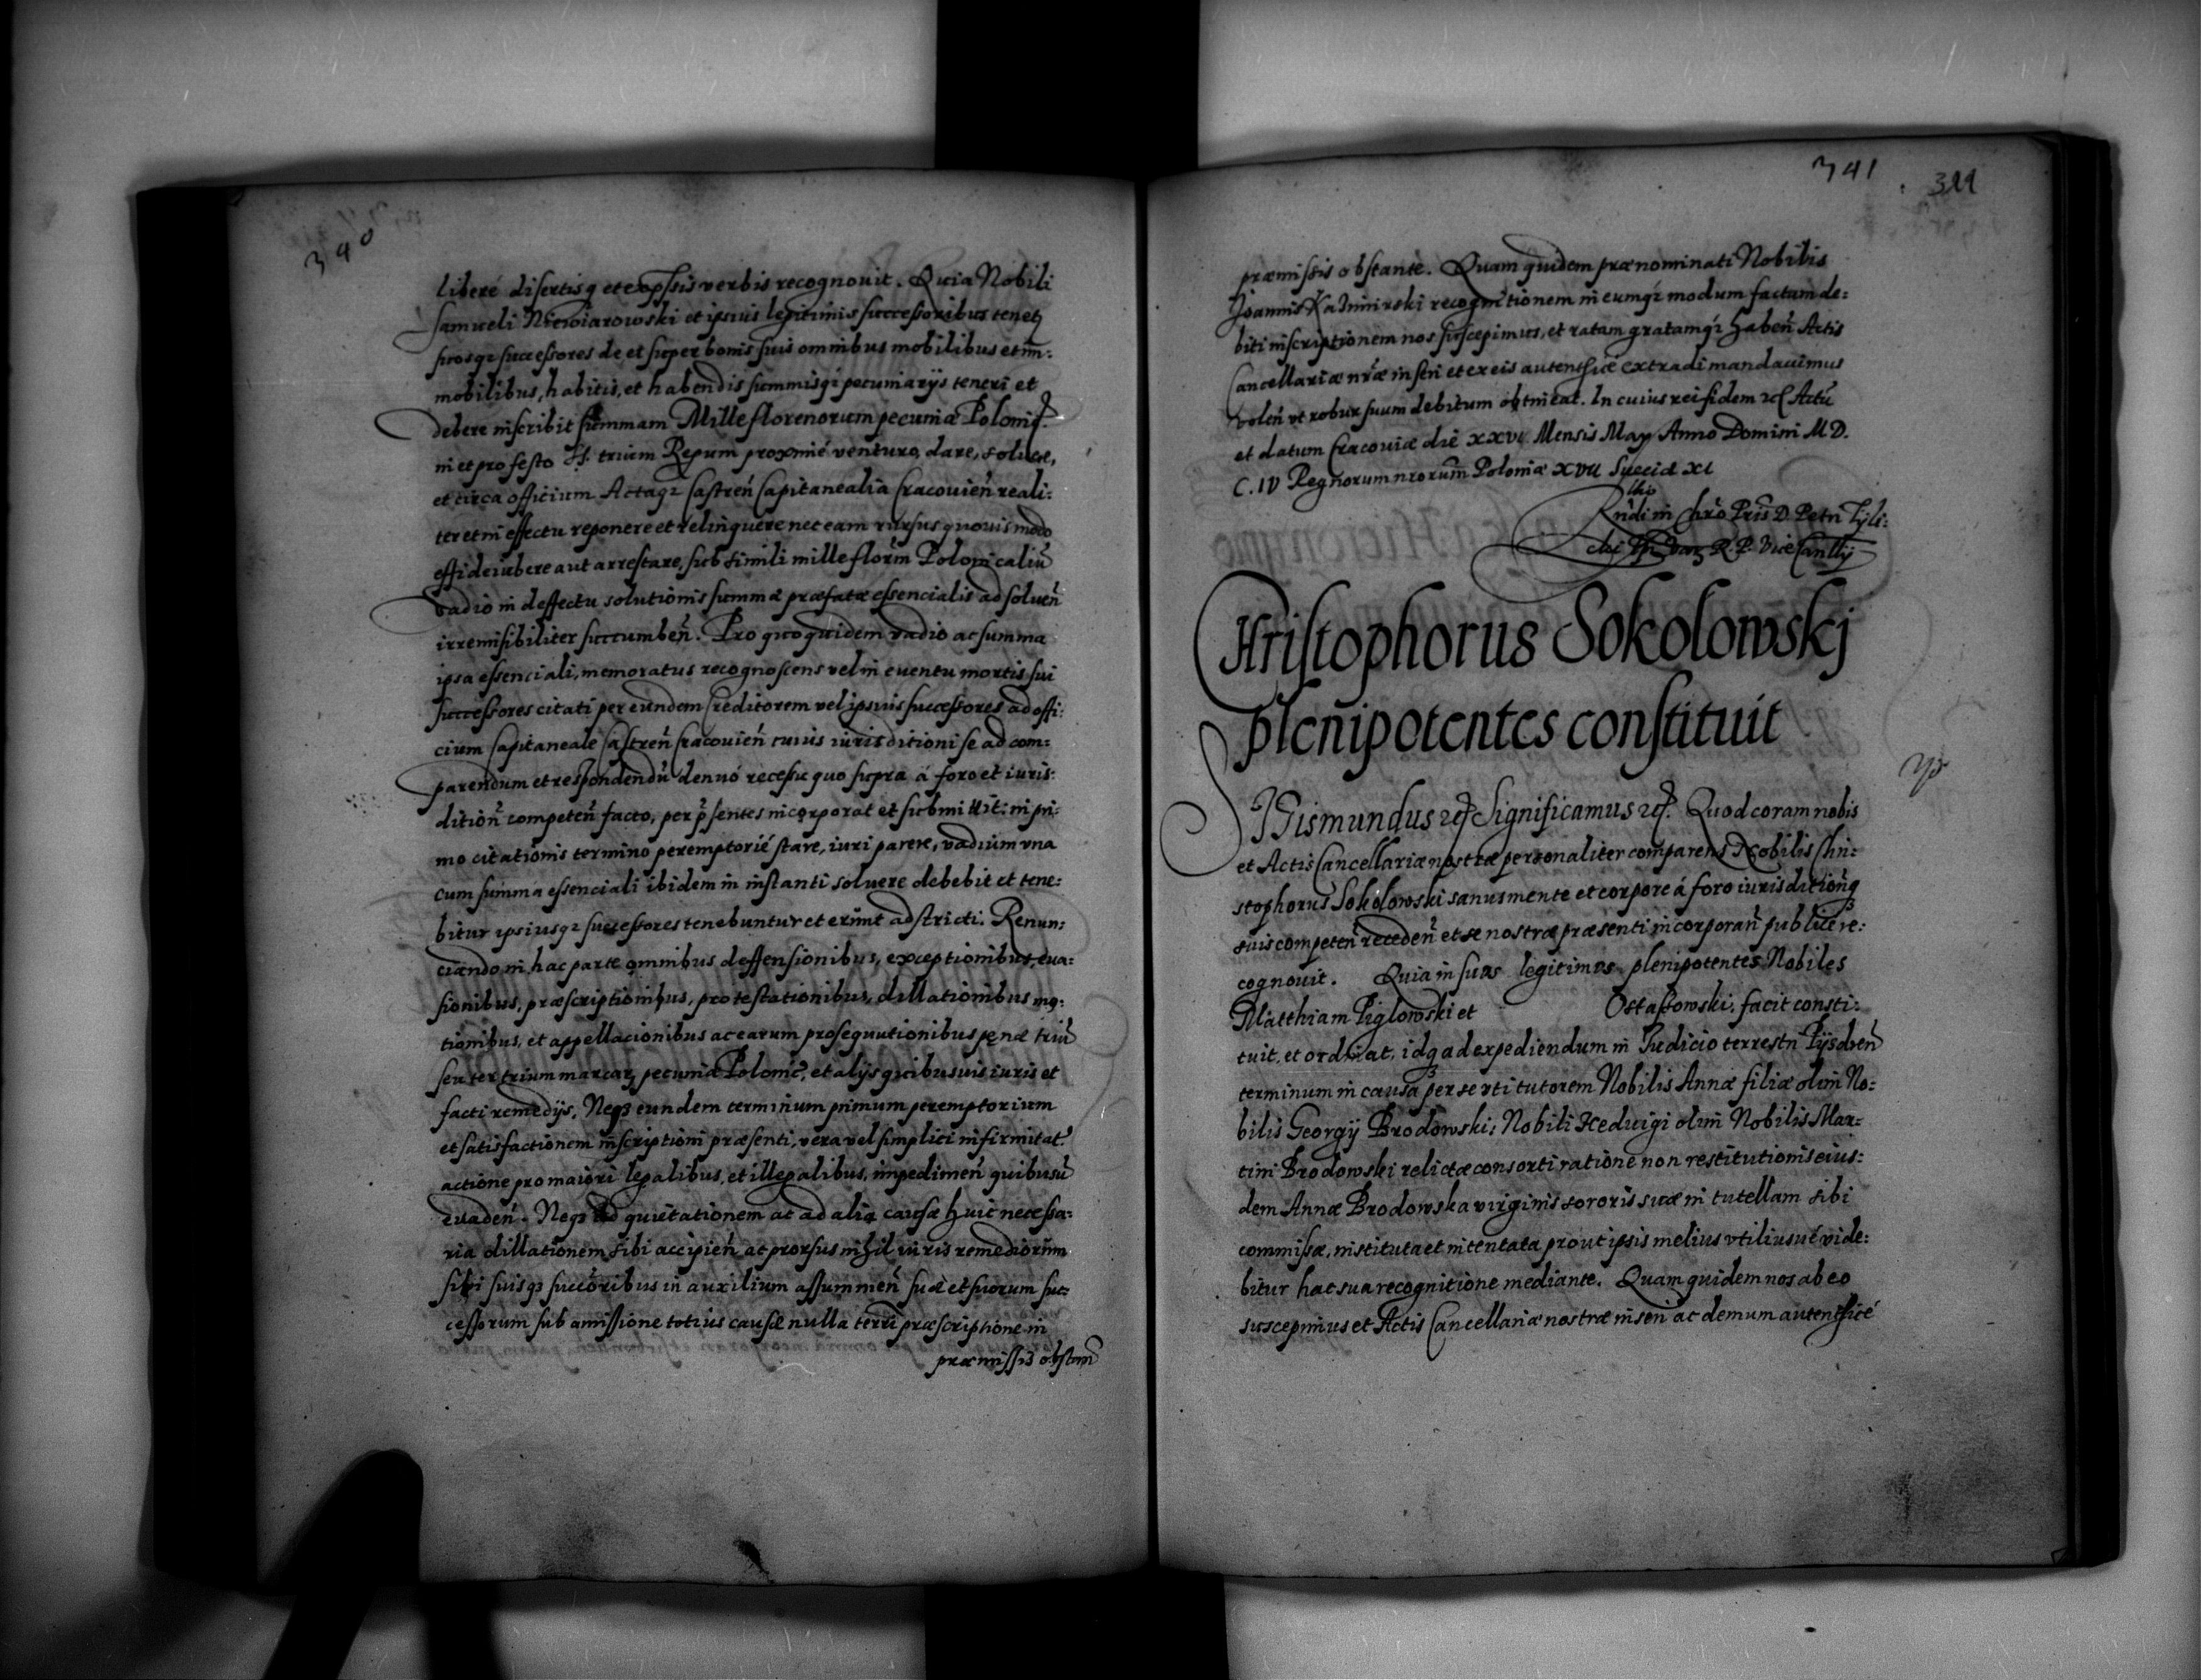 340
liberé disertisq et expssis verbis recognouit. Quia Nobili
Samueli Niewiarowski et ipsius legitimis successoribus tenetz
suosqz successores de et super bonis suis omnibus mobilibus et im:
mobilibus, habitis, et habendis summisqz pecuniarijs teneri et
debere inscribit summam Mille florenorum pecuniæ Polonic.
in et pro festo SS. trium Regum proximé venturo, dare, soluere,
et circa officium Actaqz Castreñ Capitanealia Cracouieñ reali:
ter et in effectu reponere et relinquere nec eam rursus quouis modo
effideiubere aut arrestare, sub simili mille florm Polonicaliũ
vadio in deffectu solutionis summæ præfatæ essencialis ad solueñ
irremisibiliter succumbeñ. Pro quo quidem vadio ac summa
ipsa essenciali, memoratus recognoscens vel in euentu mortis sui
successores citati per eundem Creditorem vel ipsius successores ad offi:
cium Capitaneale Castreñ Cracouieñ cuius iurisditioni se ad com:
parendum et respondendũ denuó recessu quo supra á foro et iuris:
ditioñ competeñ facto, per p̃sentes incorporat et submittit: in pri:
mo citationis termino peremptorié stare, iuri parere, vadium vna
cum summa essenciali ibidem in instanti soluere debebit et tene:
bitur ipsiusqz successores tenebuntur et erunt adstricti. Renun:
ciando in hac parte omnibus deffensionibus, exceptionibus, eua:
sionibus, præscriptionibus, protestationibus, dillationibus mo:
tionibus, et appellacionibus ac earum prosequutionibus penæ triũ
seu ter trium marcarz pecuniæ Polonic, et alijs quibusuis iuris et
facti remedijs. Neqz eundem terminum primum peremptorium
et satisfactionem inscriptioni præsenti, vera vel simplici infirmitate
actione pro maiori legalibus, et illegalibus, impedimeñ quibusũ
euadeñ. Neqz ad quietationem ac ad alia causæ huic necessa:
ria dillationem sibi accipieñ ac prorsus nihil iuris remediorum
sibi suisqz succõribus in auxilium assummeñ suæ et suorum suc:
cessorum sub amissione totius causæ nulla terræ præscriptione in
præmissis obstante
341
præmissis obstante. Quam quidem prænominati Nobilis
Joannis Kazimirski recognitionem in eumqz modum factam de:
biti inscriptionem nos suscepimus, et ratam gratamqz habeñ Actis
Cancellariæ nr̃æ inseri et ex eis autenthicé extradi mandauimus
voleñ vt robur suum debitum obtineat. In cuius rei fidem etc Actũ
et datum Cracouiæ die XXVI Mensis Maij Anno Domini M D.
C. IV Regnorum nrorum Poloniæ XVII Sueciæ XI
Rñdi in Chrõ Pris D. Petri Tyli:
cki R. P. Vice Canllrij
CHristophorus Sokolowskj
plenipotentes constituit
SIGismundus etc Significamus etc. Quod coram nobis
et Actis Cancellariæ nostræ personaliter comparens Nobilis Chri:
stophorus Sokolowski sanus mente et corpore á foro iurisditioñq
suis competeñ recedeñ et se nostræ præsenti incorporañ publice re:
cognouit. Quia in suos legitimos plenipotentes Nobiles
Matthiam Piglowski et Ostassowski, facit consti:
tuit, et ordinat, idqz ad expediendum in Judicio terrestri Pijsdreñ
terminum in causa per se vti tutorem Nobilis Annæ filiæ olim No:
bilis Georgij Brodowski, Nobili Heduigi olim Nobilis Mar:
tini Brodowski relictæ consorti ratione non restitutionis eius:
dem Annæ Brodowska virginis sororis suæ in tutellam sibi
commissæ, instituta et intentata prout ipsis melius vtiliusué vide:
bitur hac sua recognitione mediante. Quam quidem nos ab eo
suscepimus et Actis Cancellariæ nostræ inseri ac demum autenthicé